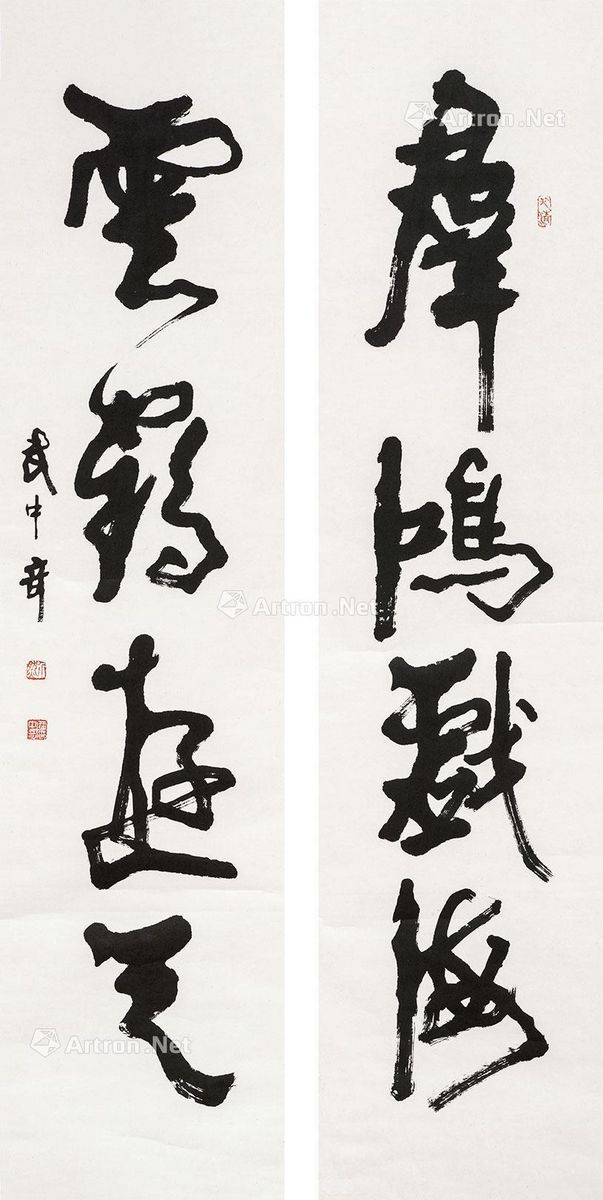 羣鴻戲海
雲鶴遊天
武中奇
Artron.Net
Artron.Net
Artron.Net